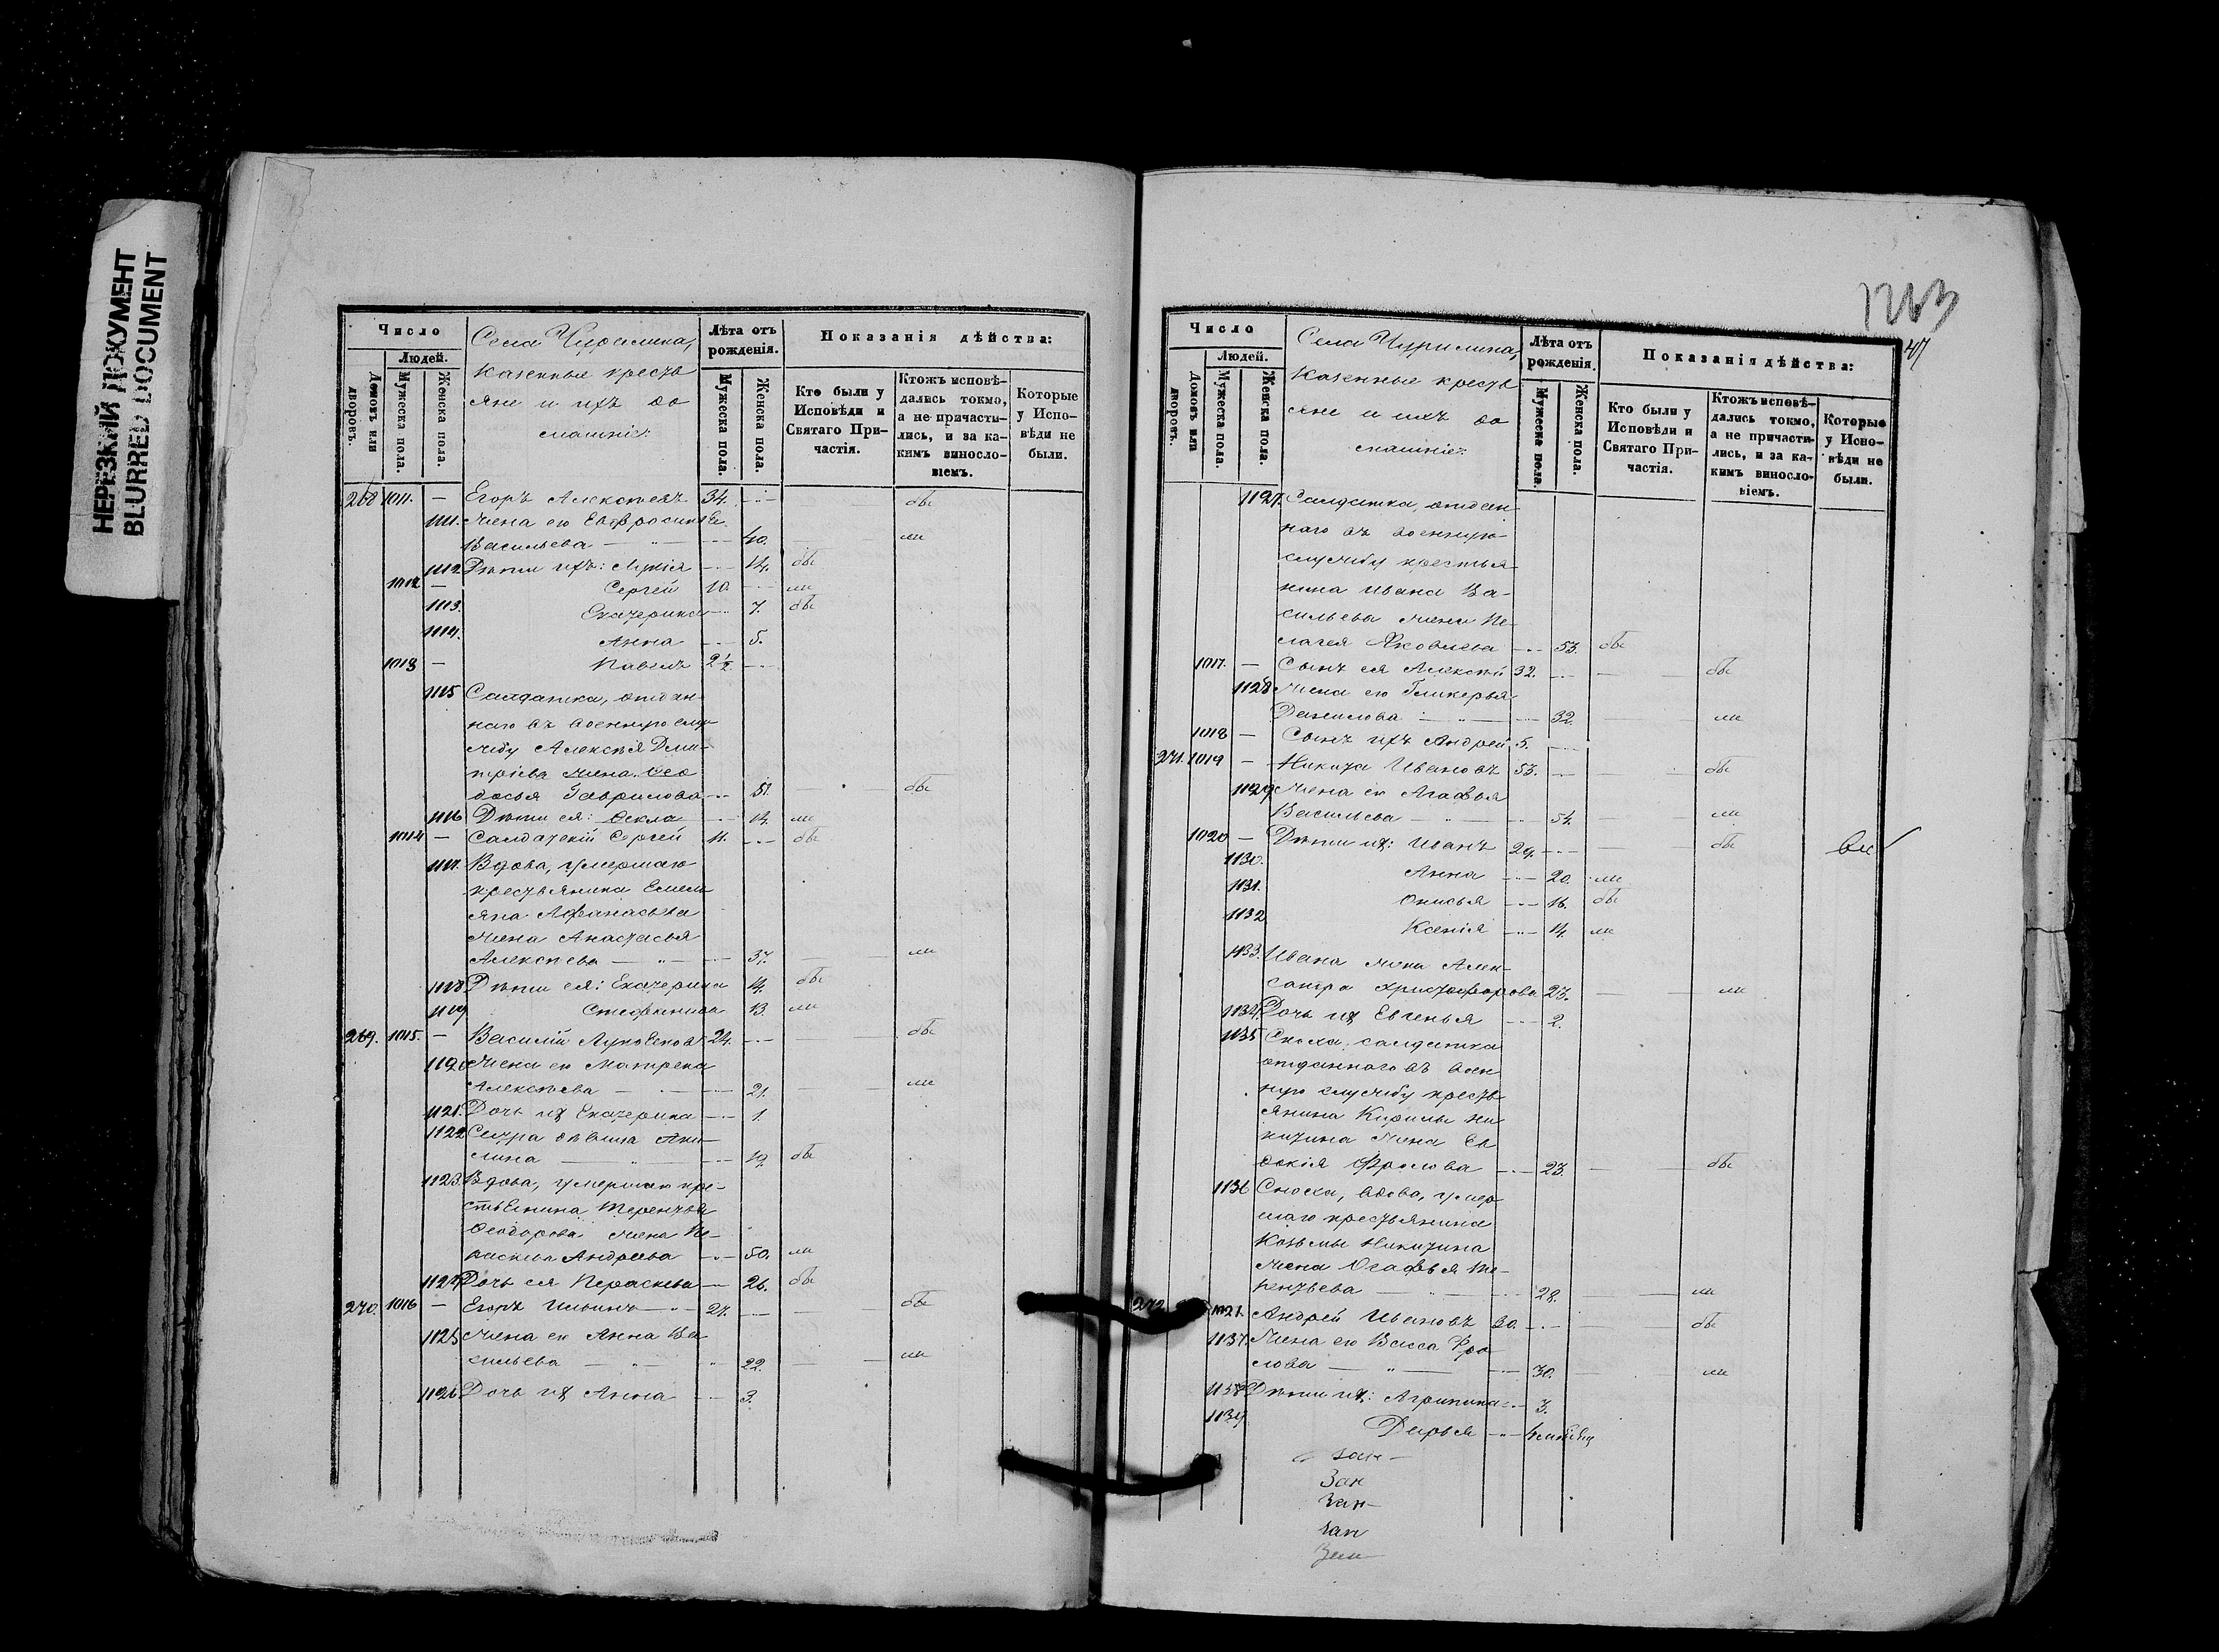 НЕРЕЗКИЙ ДОКУМЕНТ
BLURRED DOCUMENT
Число
Людей.
Домовъ или дворовъ.
Мужеска пола.
Женска пола.
Села Чурилина,
казенные кресть
яне и ихъ до
машніе:
Лѣта отъ рожденія.
Мужеска пола.
Женска пола.
Показанія дѣйства:
Кто были у Исповѣди и Святаго Причастія.
Ктожъ исповѣдались токмо, а не причастились, и за какимъ винословіемъ.
Которые у Исповѣди не были.
268 1011. — Егоръ Алексѣевъ 34.
1111. Жена его Евфросинья
Васильева 40.
1112 Дѣти ихъ: Лукія 14.
1012 — Сергей 10
1113. Екатерина 7.
1114. Анна 5.
1013 — Павелъ 2½
1115 Салдатка, отдан
наго въ военную слу
жбу Алексѣя Дми-
тріева жена Ѳео
досья Гаврилова 51.
1116 Дѣти ея: Ѳекла 14.
1014 — Салдатскій Сергей 11.
1117. Вдова, умершаго
крестьянина Емель
яна Афанасьева
жена Анастасья
Алексѣева 37.
1118 Дѣти ея: Екатерина 14.
1119 Стефанида 13.
269. 1015. — Василій 24.
1120 Жена его Матрена
Алексѣева 21.
1121. Дочь ихъ Екатерина 1.
1122 Сестра дѣвица Аку-
лина 19.
1123. Вдова, умершаго кре-
стьянина Терентья
Ѳеодорова жена Пе-
раскева Андреева 50.
1124 Дочь ея Пераскева 26.
270. 1016 — Егоръ Ильинъ 27.
1125 Жена его Анна Ва
сильева 22.
1126 Дочь ихъ Анна 3.
1263
47
Число
Людей.
Домовъ или дворовъ.
Мужеска пола.
Женска пола.
Села Чурилина,
казенные кресть
яне и ихъ до
машніе:
Лѣта отъ рожденія.
Мужеска пола.
Женска пола.
Показанія дѣйства:
Кто были у Исповѣди и Святаго Причастія.
Ктожъ исповѣдались токмо, а не причастились, и за какимъ винословіемъ.
Которые у Исповѣди не были.
1127. Салдатка, отдан
наго въ военную
службу крестья
нина Ивана Ва-
сильева жена Пе
лагея Яковлева 53.
1017. — Сынъ ея Алексѣй 32.
1128 Жена его Гликерья
Данилова 32.
1018 — Сынъ ихъ Андрей 5.
271. 1019 — Никита Ивановъ 53.
1129 Жена его Агафья
Васильева 54.
1020 — Дѣти ихъ: Иванъ 29.
1130. Анна 20.
1131. Онисья 16.
1132 Ксенія 14.
1133. Ивана жена Алек-
сандра Христофорова 23.
1134. Дочь ихъ Евгенья 2.
1135 Сноха, салдатка
отданнаго въ воен
ную службу кресть
янина Кирилы Ни
китина жена Ев
докія Фролова 23.
1136 Сноха, вдова, умер
шаго крестьянина
Козьмы Никитина
жена Агафья Те-
рентьева 28.
272 1021. Андрей Ивановъ 30.
1137. Жена его Васса Фро
лова 30.
1138 Дѣти ихъ: Агрипина 3.
1139 Дарья
зак
Зак
Зак